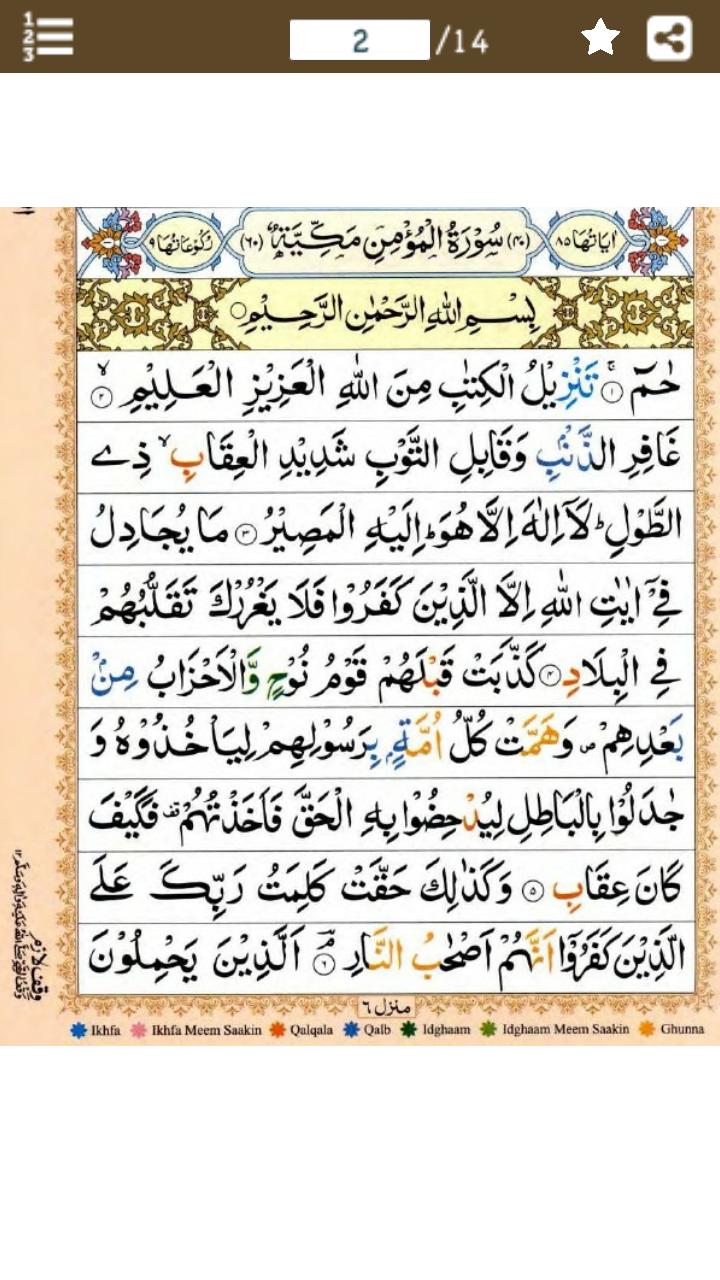 1
2
3
2 /14
اٰیاتها ٨٥ (٤٠) سُوْرَةُ الْمُؤْمِنِ مَكِّیَّةٌ (٦٠) رُكُوْعَاتُهَا ٩
بِسْمِ اللّٰهِ الرَّحْمٰنِ الرَّحِیْمِ
حٰمٓ ۚ﴿۱﴾ تَنْزِیْلُ الْكِتٰبِ مِنَ اللّٰهِ الْعَزِیْزِ الْعَلِیْمِ ۙ﴿۲﴾
غَافِرِ الذَّنْۢبِ وَقَابِلِ التَّوْبِ شَدِیْدِ الْعِقَابِ ۙ ذِی
الطَّوْلِ ؕ لَاۤ اِلٰهَ اِلَّا هُوَ ؕ اِلَیْهِ الْمَصِیْرُ ﴿۳﴾ مَا یُجَادِلُ
فِیْۤ اٰیٰتِ اللّٰهِ اِلَّا الَّذِیْنَ كَفَرُوْا فَلَا یَغْرُرْكَ تَقَلُّبُهُمْ
فِی الْبِلَادِ ﴿۴﴾ كَذَّبَتْ قَبْلَهُمْ قَوْمُ نُوْحٍ وَّالْاَحْزَابُ مِنْۢ
بَعْدِهِمْ ۪ وَهَمَّتْ كُلُّ اُمَّةٍۭ بِرَسُوْلِهِمْ لِیَاْخُذُوْهُ وَ
جٰدَلُوْا بِالْبَاطِلِ لِیُدْحِضُوْا بِهِ الْحَقَّ فَاَخَذْتُهُمْ ۫ فَكَیْفَ
كَانَ عِقَابِ ﴿۵﴾ وَكَذٰلِكَ حَقَّتْ كَلِمَتُ رَبِّكَ عَلَی
الَّذِیْنَ كَفَرُوْۤا اَنَّهُمْ اَصْحٰبُ النَّارِ ۘؔ﴿۶﴾ اَلَّذِیْنَ یَحْمِلُوْنَ
منزل ٦
وقف لازم
Ikhfa Ikhfa Meem Saakin Qalqala Qalb Idghaam Idghaam Meem Saakin Ghunna